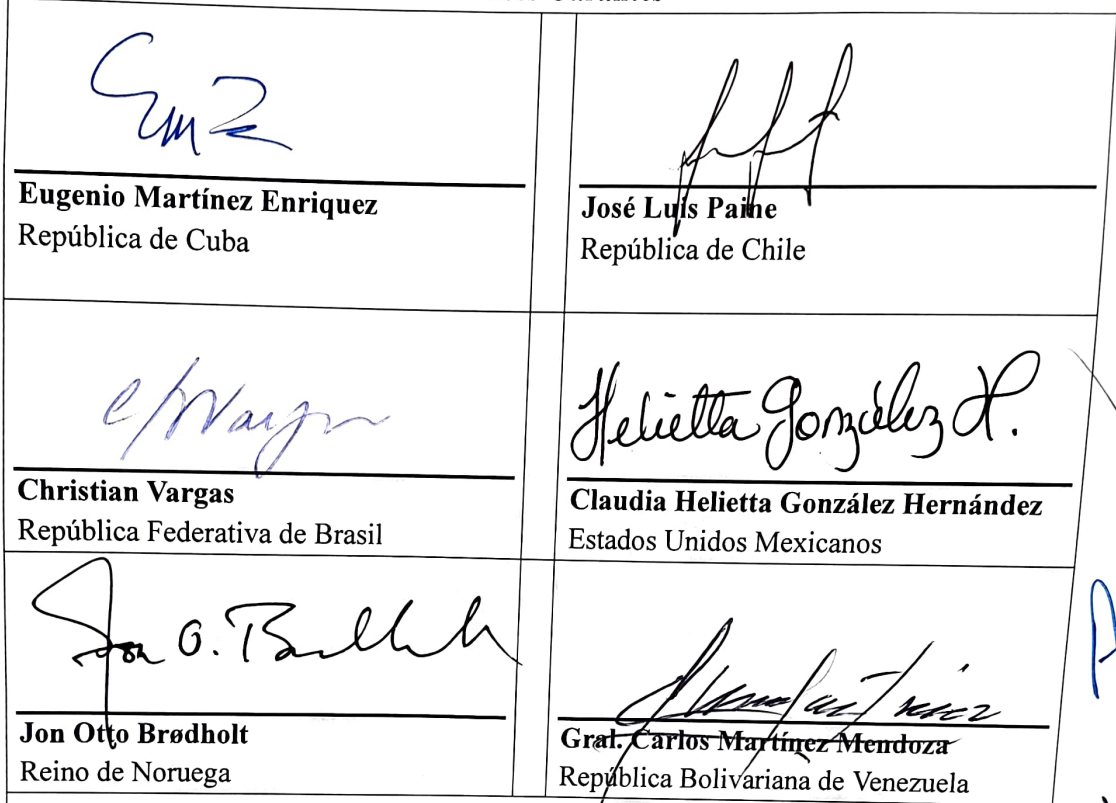 Eugenio Martínez Enriquez
República de Cuba
José Luis Paine
República de Chile
Christian Vargas
República Federativa de Brasil
Helietta González H.
Claudia Helietta González Hernández
Estados Unidos Mexicanos
Jon O.
Jon Otto Brødholt
Reino de Noruega
Gral. Carlos Martínez Mendoza
República Bolivariana de Venezuela